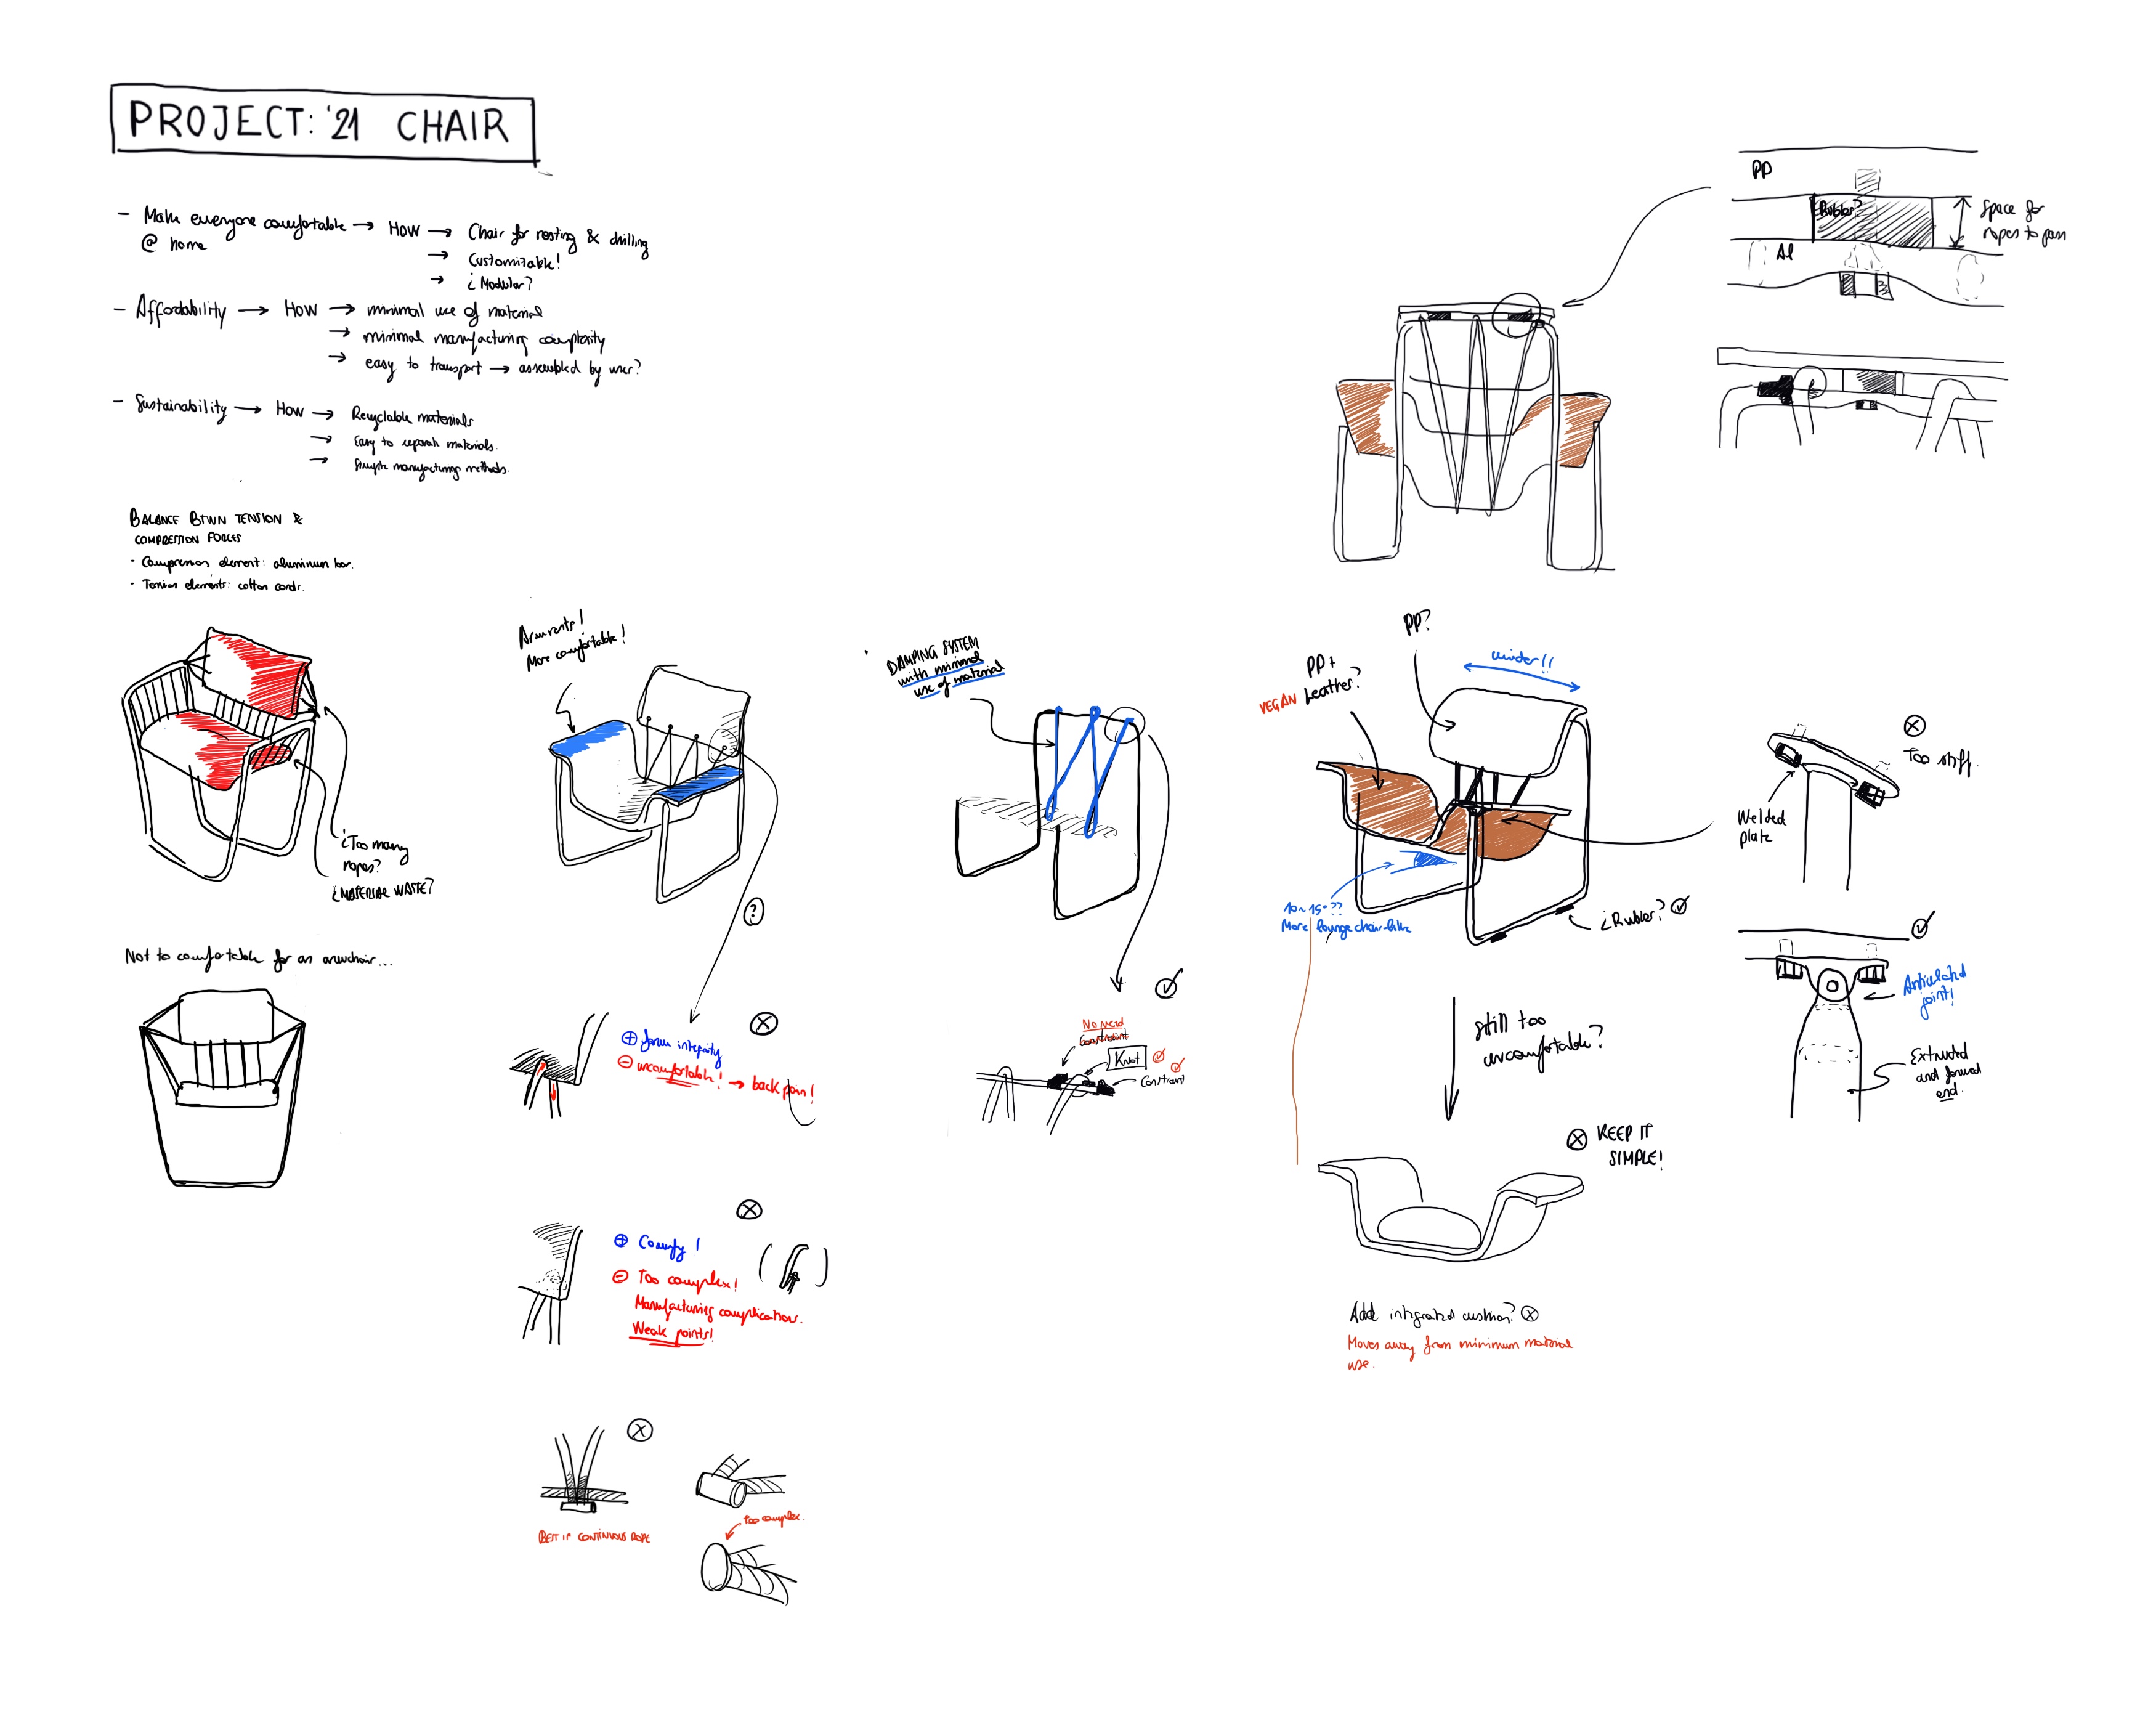 PROJECT: '21 CHAIR
- Make everyone comfortable → How → Chair for resting & chilling
@ home
→ Customizable!
→ ¿Modular?
- Affordability → How → minimal use of material
→ minimal manufacturing complexity
→ easy to transport → assembled by user?
- Sustainability → How → Recyclable materials
→ Easy to separate materials.
→ Simple manufacturing methods.
BALANCE BTWN TENSION &
COMPRESSION FORCES
- Compression element: aluminum bar.
- Tension elements: cotton cords.
¿Too many
ropes?
¿MATERIAL WASTE?
Not to comfortable for an armchair...
Armrests!
More comfortable!
?
⊕ form integrity
⊖ uncomfortable! → back pain!
⊕ Comfy!
⊖ Too complex!
Manufacturing complications.
Weak points!
BEST IF CONTINUOUS ROPE
Too complex.
DAMPING SYSTEM
with minimal
use of material
No need
constraint
Knot
Constraint
PP
Rubber?
Al
Space for
ropes to pass
PP?
wider!!
PP+
VEGAN Leather?
10~15°??
More lounge chair-like
¿Rubber?
Still too
uncomfortable?
KEEP IT
SIMPLE!
Add integrated cushion?
Moves away from minimum material
use.
Too stiff.
Welded
plate
Articulated
joint!
Extruded
and formed
end.